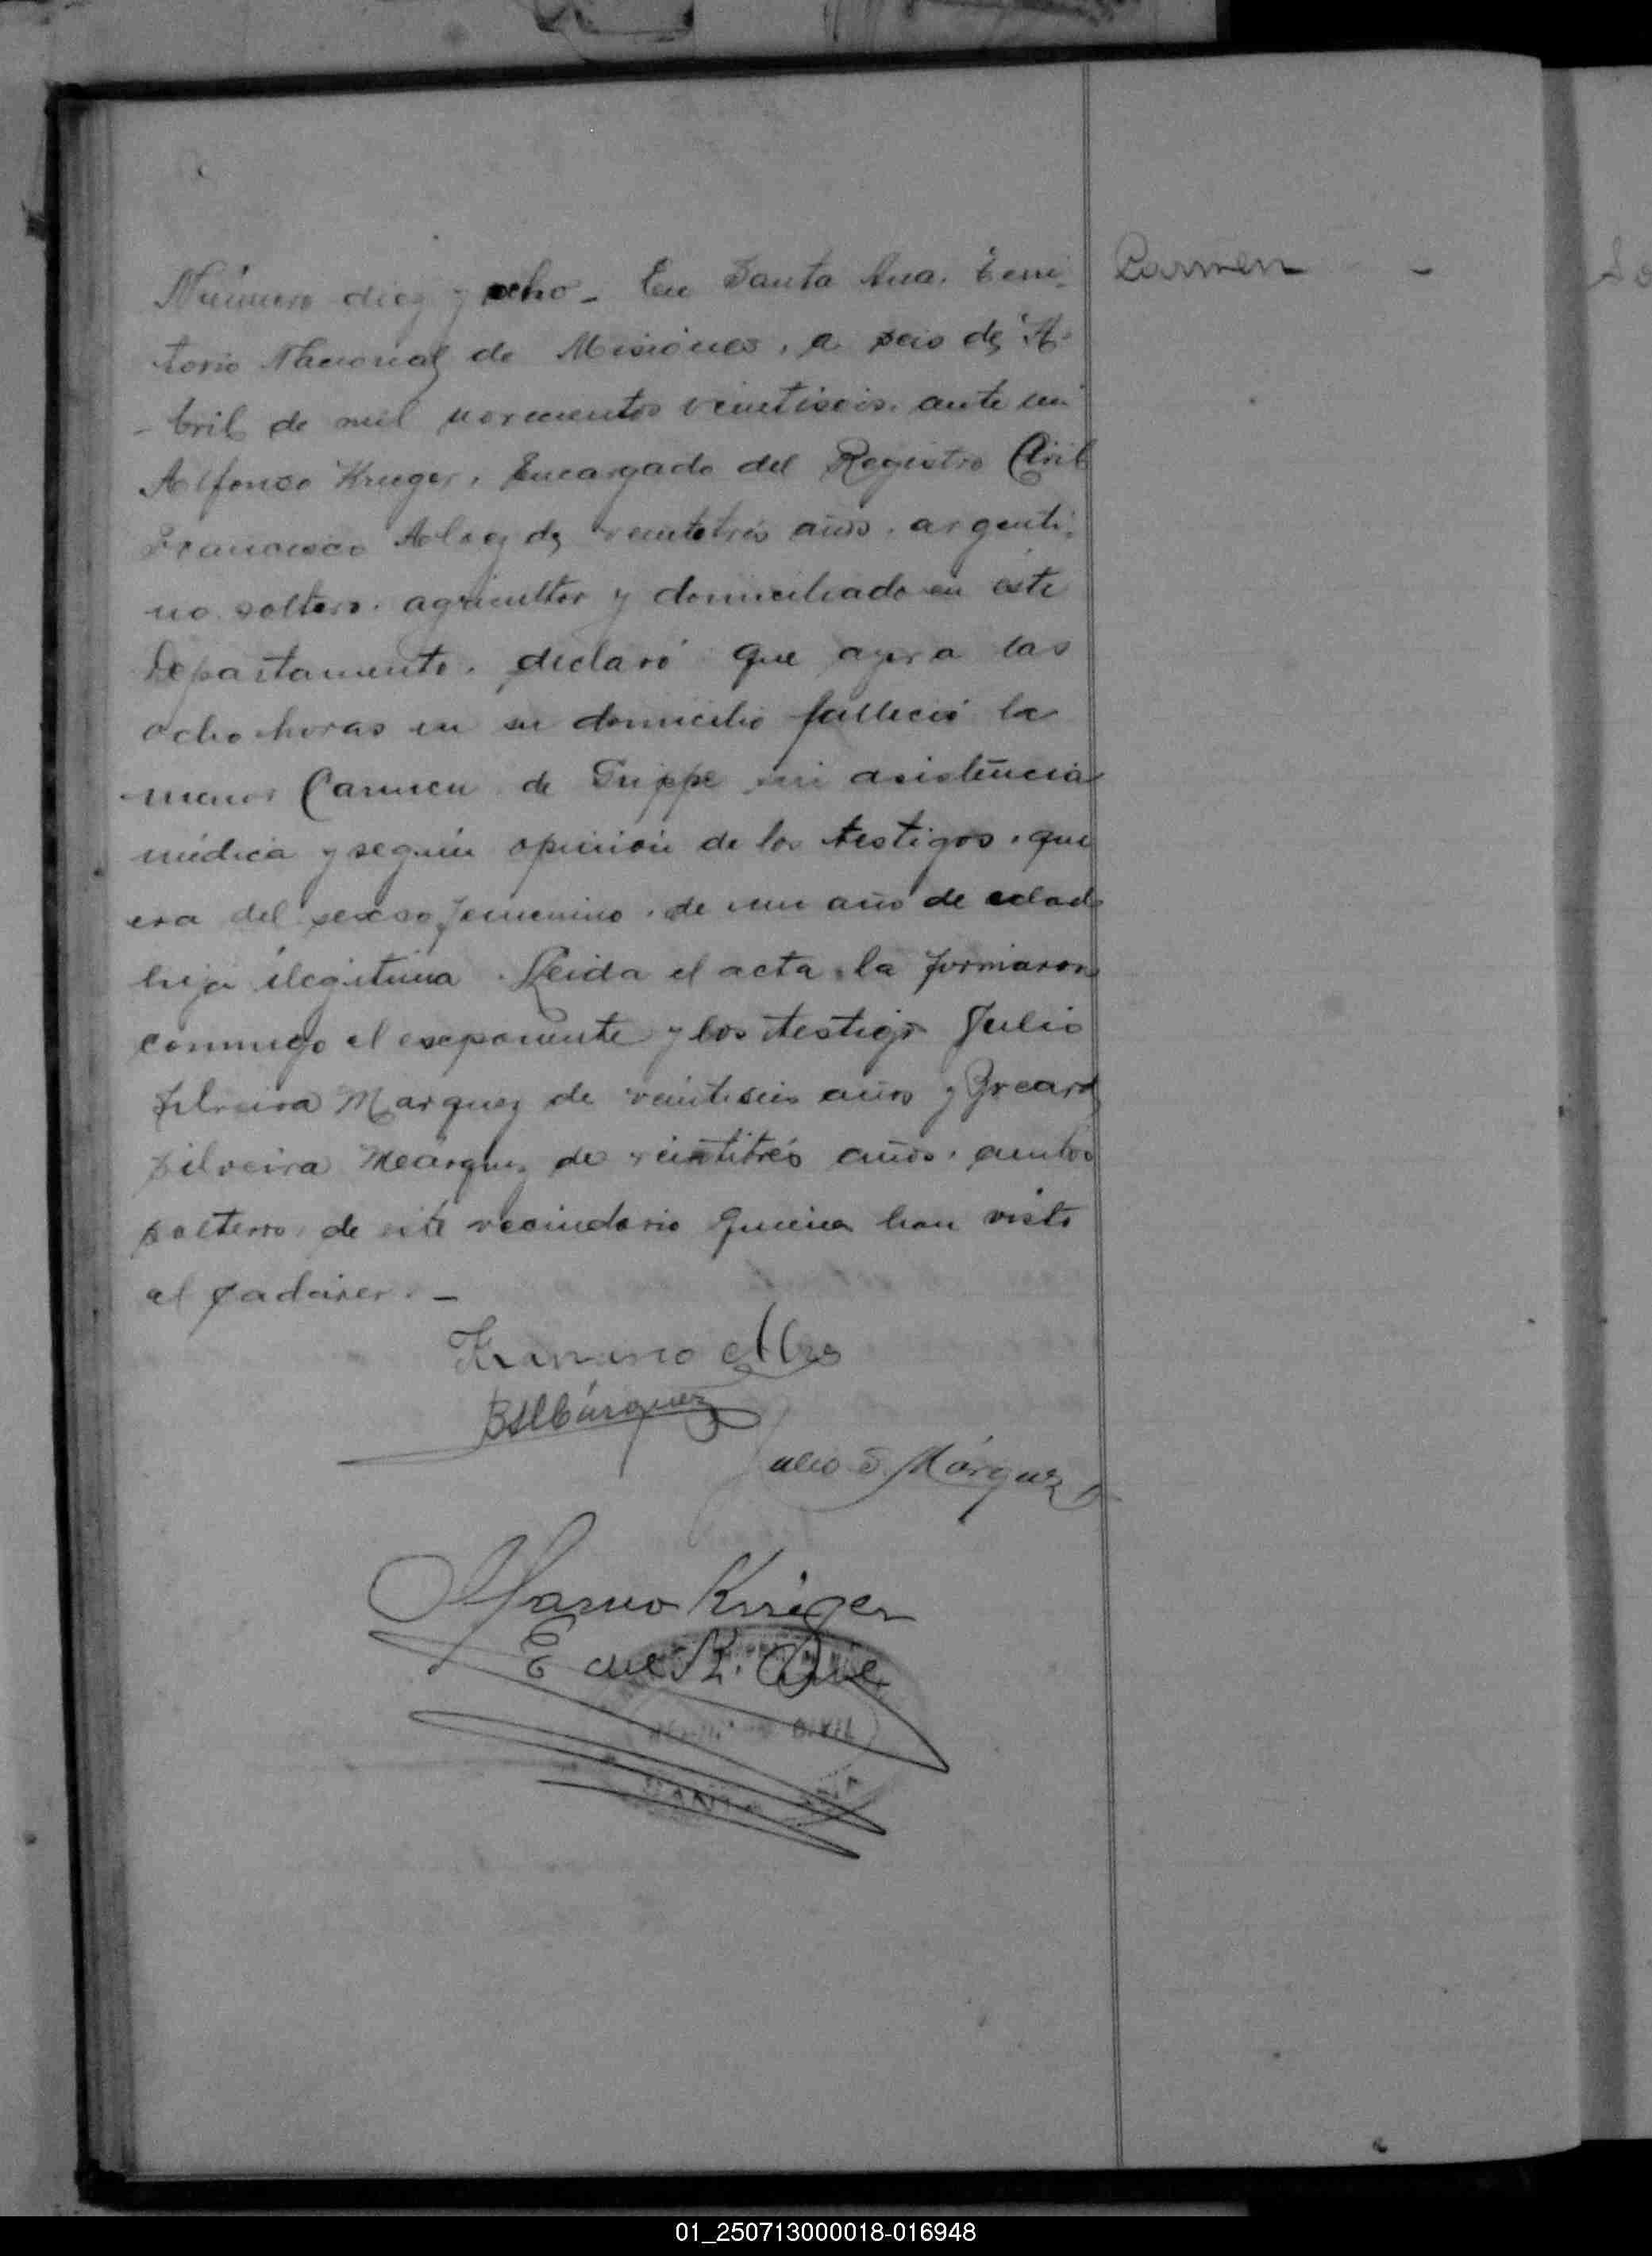 Número diez y ocho _ En Santa Ana. Terri-
torio Nacional de Misiones, a seis de A-
- bril de mil novecientos veintiseis, ante mi
Alfonso Kruger, Encargado del Registro Civil
Francisco de veintetrés años, argenti-
no soltero, agricultor y domiciliado en éste
Departamento, declaró que ayer a las
ocho horas en su domicilio falleció la
menor Carmen de Grippe sin asistencia
médica y según opinión de los testigos, que
era del sexso femenino, de un año de edad
hija ilegitima. Leida el acta la firmaron
conmigo el exponente y los testigo Julio
Silveira Marquez de veintiseis años y
Silveira Márquez de veintitrés años, ambos
solteros de este vecindario quienes han visto
el cadáver. _
Carmen -
Francisco
BSMárquez
Julio S. Márquez
Kruger
E del R. Civil
CIVIL
SANTA ANA
01_250713000018-016948